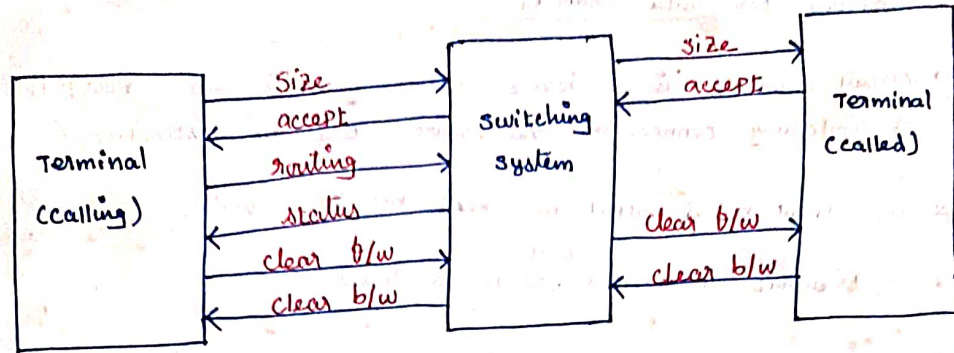 Terminal
(calling)
Size
accept
routing
status
clear b/w
clear b/w
switching
system
size
accept
clear b/w
clear b/w
Terminal
(called)